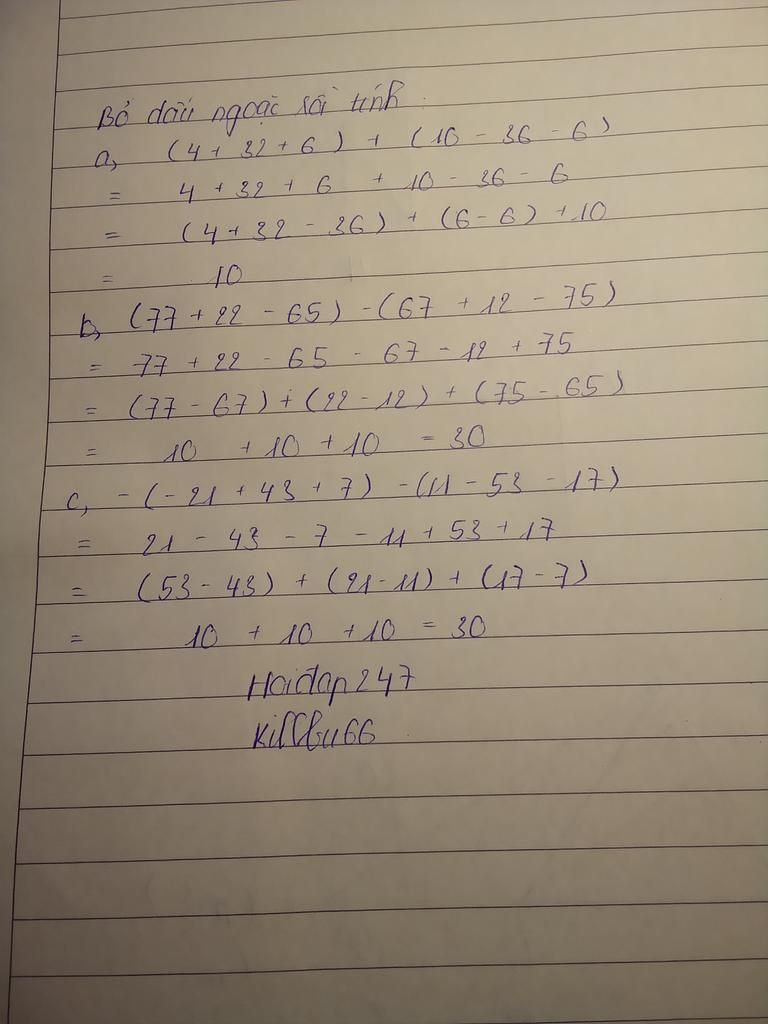 Bỏ dấu ngoặc rồi tính:
a, (4 + 32 + 6) + (10 - 36 - 6)
= 4 + 32 + 6 + 10 - 36 - 6
= (4 + 32 - 36) + (6 - 6) + 10
= 10
b, (77 + 22 - 65) - (67 + 12 - 75)
= 77 + 22 - 65 - 67 - 12 + 75
= (77 - 67) + (22 - 12) + (75 - 65)
= 10 + 10 + 10 = 30
c, - (-21 + 43 + 7) - (11 - 53 - 17)
= 21 - 43 - 7 - 11 + 53 + 17
= (53 - 43) + (21 - 11) + (17 - 7)
= 10 + 10 + 10 = 30
Hoidap247
Killbu66